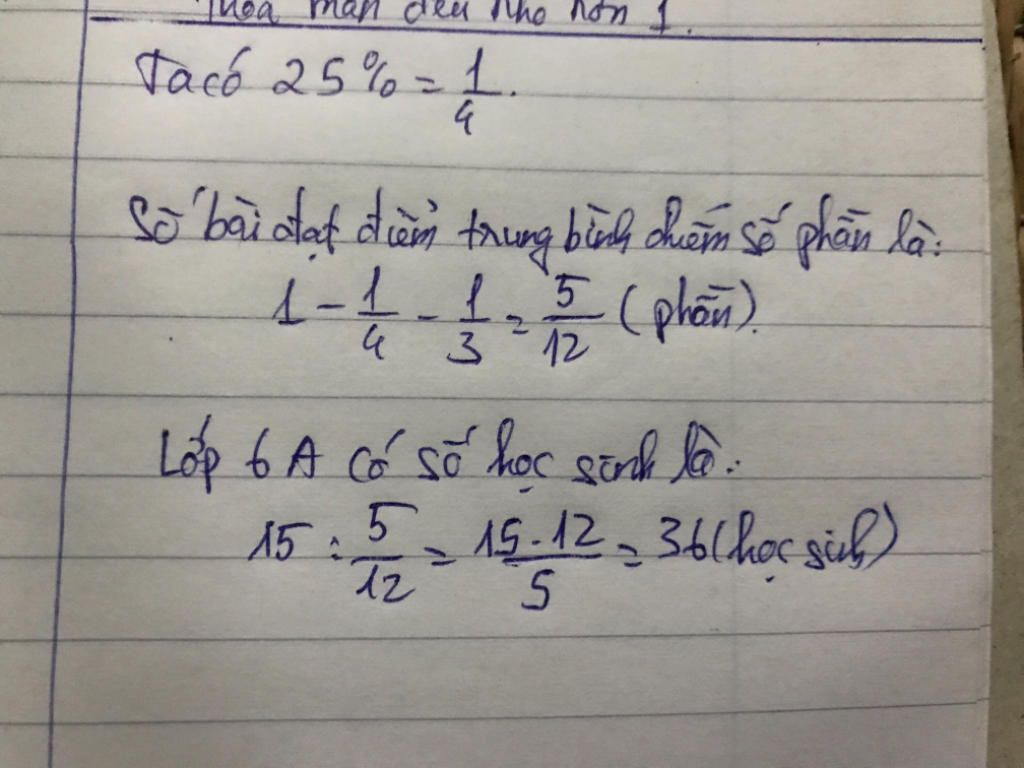 Thỏa mãn đều nhỏ hơn 1.
Ta có 25% = 1/4.
Số bài đạt điểm trung bình chiếm số phần là:
1 - 1/4 - 1/3 = 5/12 (phần).
Lớp 6A có số học sinh là:
15 : 5/12 = 15.12/5 = 36 (học sinh)